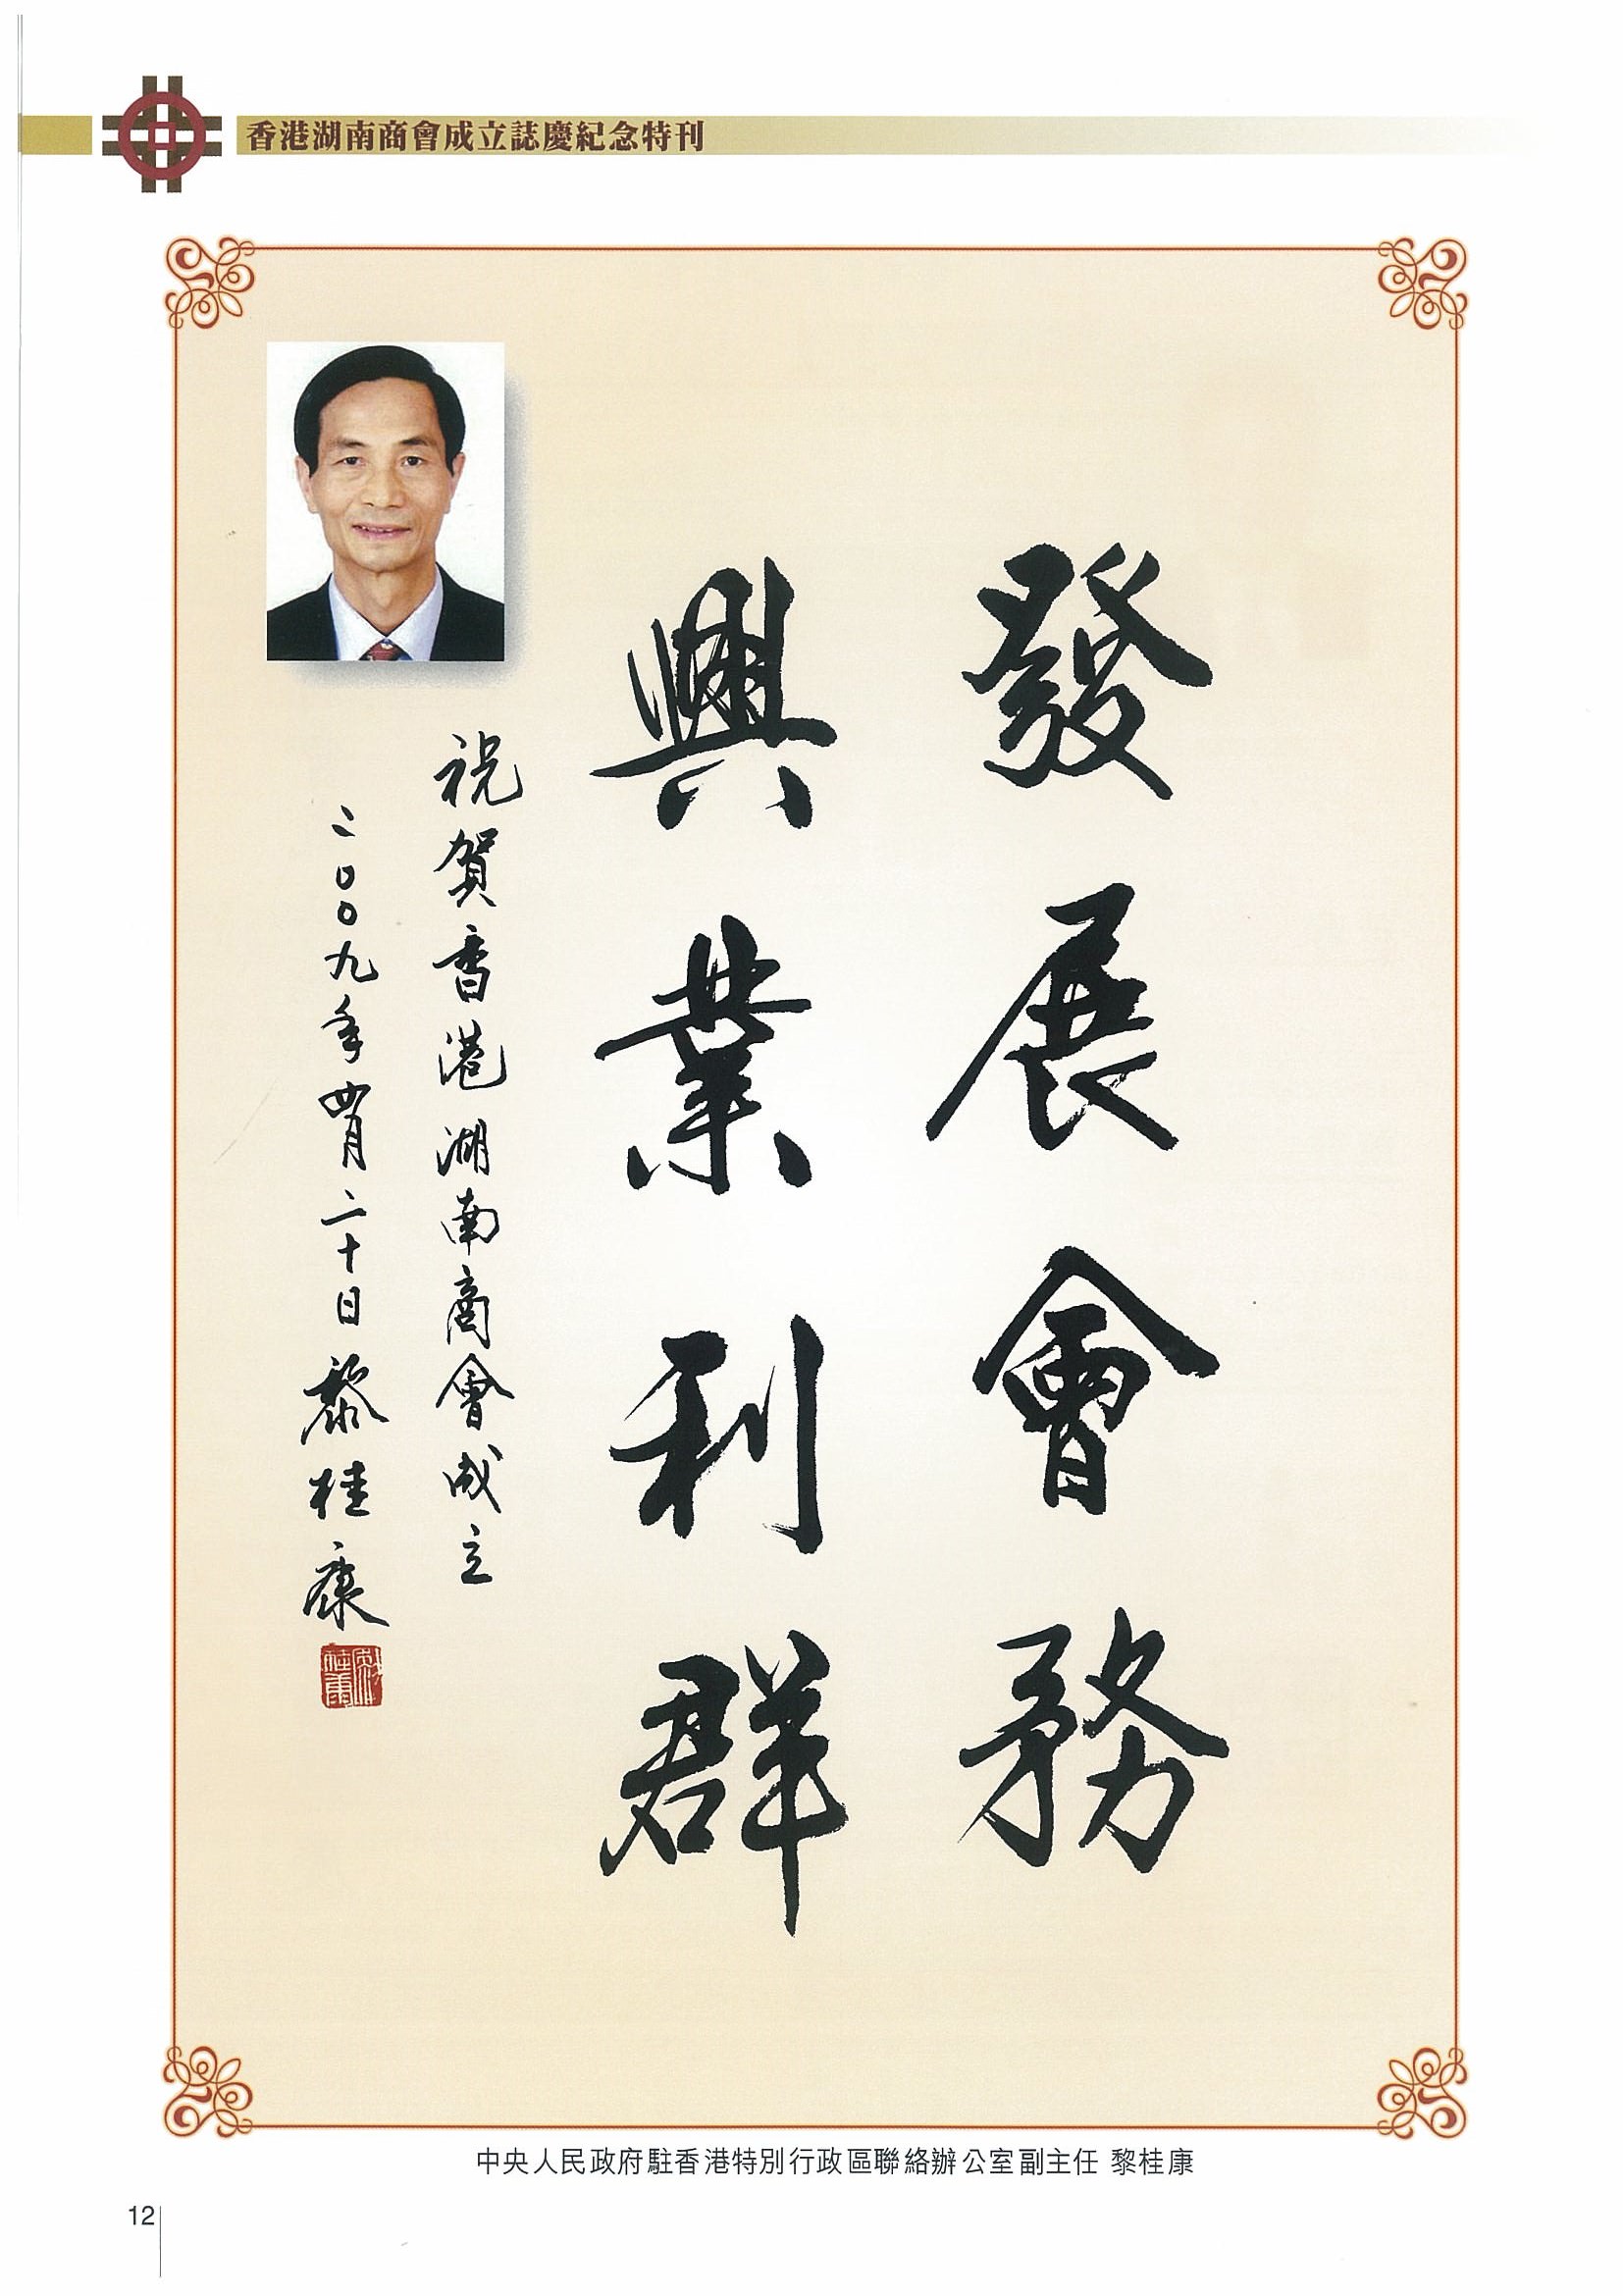 香港湖南商會成立誌慶紀念特刊
發展會務
興業利群
祝賀香港湖南商會成立
二00九年四月二十日 黎桂康
黎桂康
中央人民政府駐香港特別行政區聯絡辦公室副主任 黎桂康
12